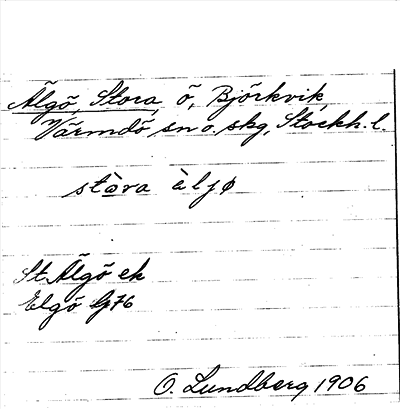 Älgö, Stora, ö, Björkvik,
Värmdö sn o. skg, Stockh. l.
stòra àljø
St. Älgö ek
Elgö Gj 76
O. Lundberg 1906